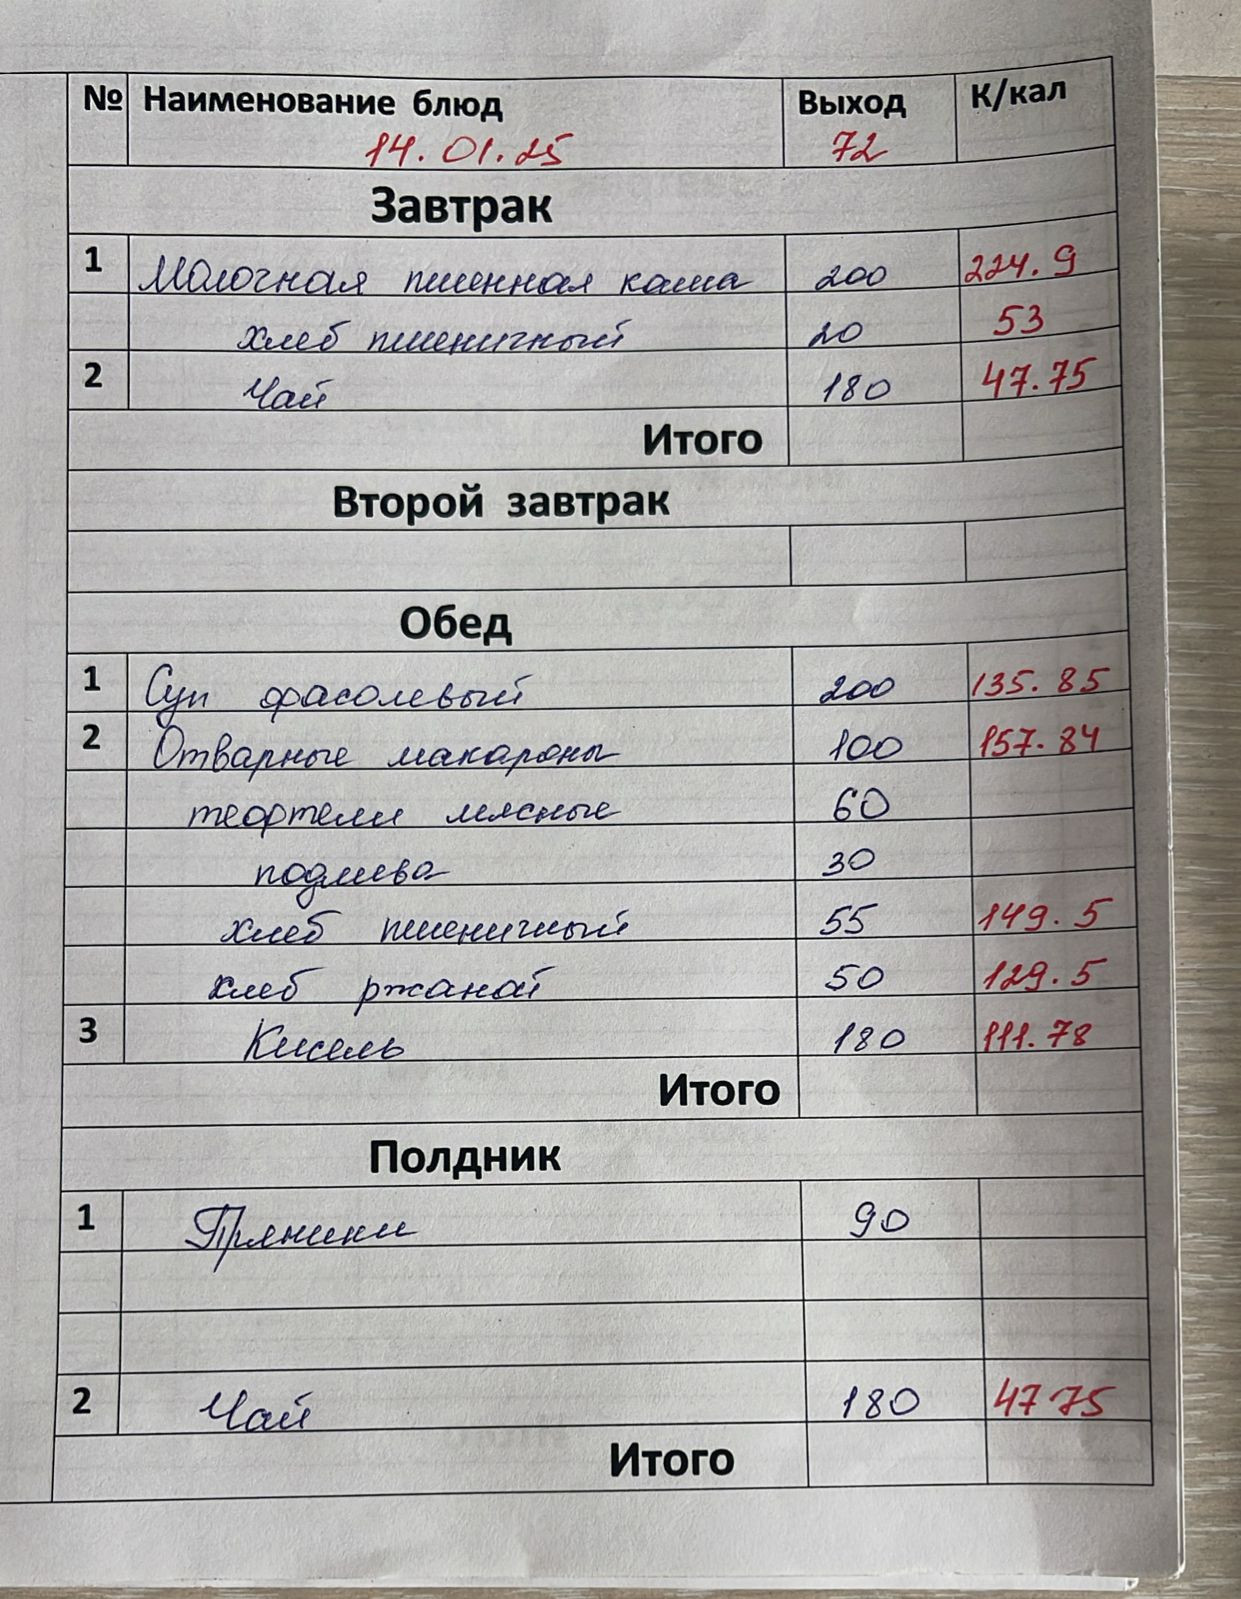 № Наименование блюд Выход К/кал
14.01.25 72
Завтрак
1 Молочная пшенная каша 200 224.9
хлеб пшеничный 20 53
2 Чай 180 47.75
Итого
Второй завтрак
Обед
1 Суп фасолевый 200 135.85
2 Отварные макароны 100 157.84
тефтели мясные 60
подлива 30
хлеб пшеничный 55 149.5
хлеб ржаной 50 129.5
3 Кисель 180 111.78
Итого
Полдник
1 Пряники 90
2 Чай 180 47 75
Итого